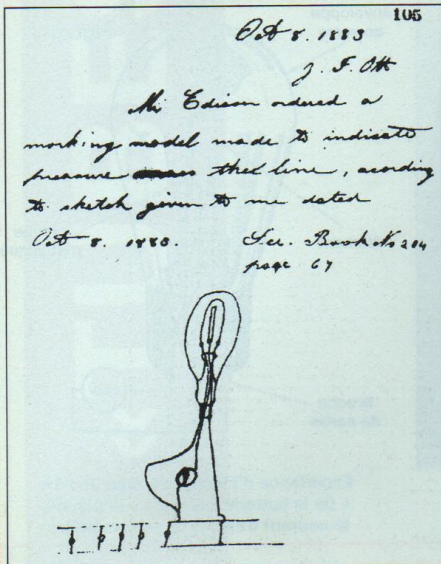 105
Oct 8. 1883
J. F. Ott
Mr Edison ordered a
working model made to indicate
pressure thet line, acording
to sketch given to me dated
Oct 8. 1883. See. Book No 204
page 67